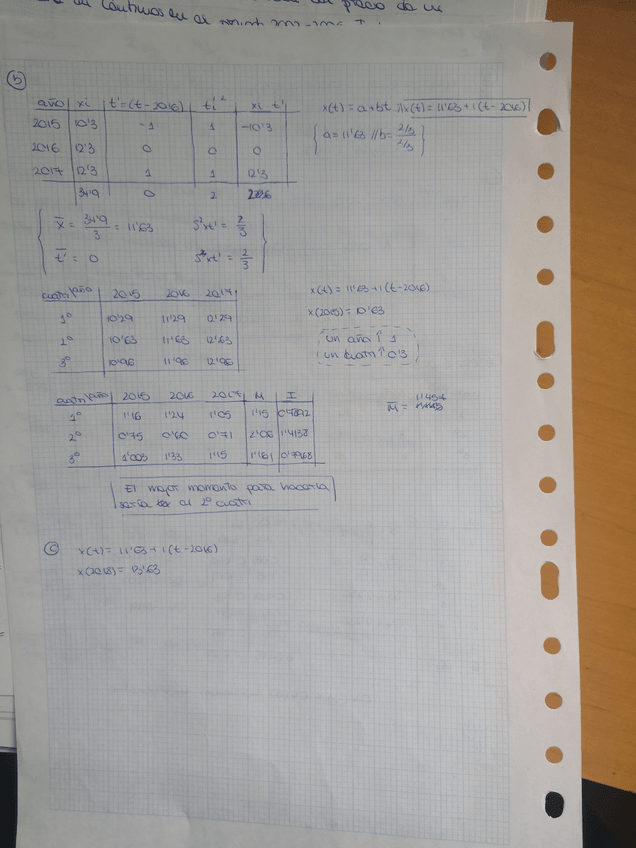 b)
año xi t'=(t-2016) ti'² xi t'
2015 10'3 -1 1 -10'3
2016 12'3 0 0 0
2017 12'3 1 1 12'3
34'9 0 2
x(t) = a+bt // x(t) = 11'63+1(t-2016)
a = 11'63 // b = 2/3 / 2/3
x̄ = 34'9/3 = 11'63 S²xt' = 2/3
t̄' = 0
cuatri/año 2015 2016 2017
1º 10'29 11'29 12'29
2º 10'63 11'63 12'63
3º 10'96 11'96 12'96
x(t) = 11'63+1(t-2016)
x(2015) = 10'63
un año ↑ 1
un cuatri ↑ 0'3
cuatri/año 2015 2016 2017 M I
1º 1'16 1'24 1'05 1'15 0'7892
2º 0'75 0'60 0'71 2'06 1'4138
3º 1'003 1'33 1'15 1'161 0'7968
M̄ =
El mejor momento para hacerla
sería en el 2º cuatri
c) x(t) = 11'63+1(t-2016)
x(2018) = 13'63